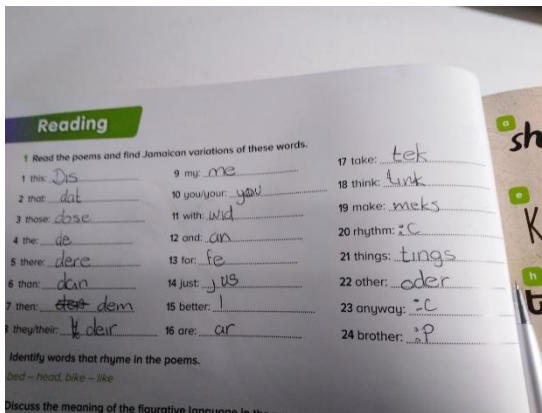 Reading
1 Read the poems and find Jamaican variations of these words.
1 this: Dis
2 that: dat
3 those: dose
4 the: de
5 there: dere
6 than: dan
7 then: dem
they/their: deir
9 my: me
10 you/your: you
11 with: wid
12 and: an
13 for: fe
14 just: jus
15 better: I
16 are: ar
17 take: tek
18 think: tink
19 make: meks
20 rhythm: :C
21 things: tings
22 other: oder
23 anyway: :C
24 brother: :P
Identify words that rhyme in the poems.
bed – head, bike – like
Discuss the meaning of the figurative language in the
a
sh
e
K
h